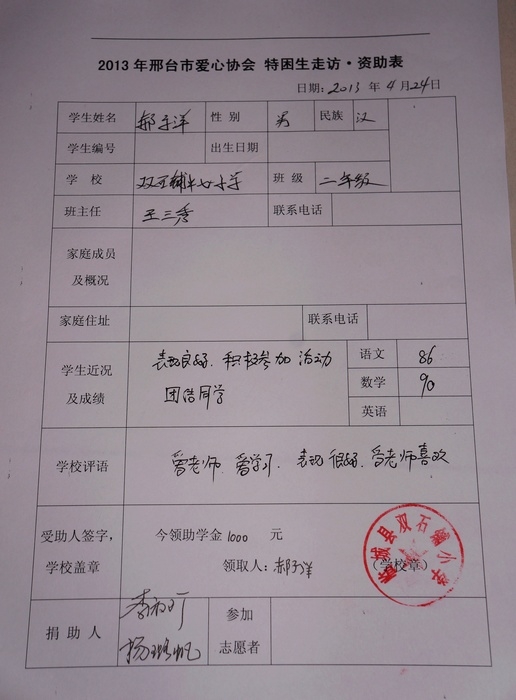 2013年邢台市爱心协会 特困生走访·资助表
日期：2013 年 4 月 24 日
学生姓名 郝子洋 性 别 男 民族 汉
学生编号 出生日期
学 校 班 级 二年级
班主任 王三秀 联系电话
家庭成员
及概况
家庭住址 联系电话
学生近况
及成绩
表现良好. 积极参加 活动
团结同学
语文 86
数学 90
英语
学校评语 爱老师. 爱学习. 表现很好. 受老师喜欢
受助人签字，
学校盖章
今领助学金 1000 元
领取人：郝子洋
（学校章）
城县双石铺小学
捐 助 人
参加
志愿者